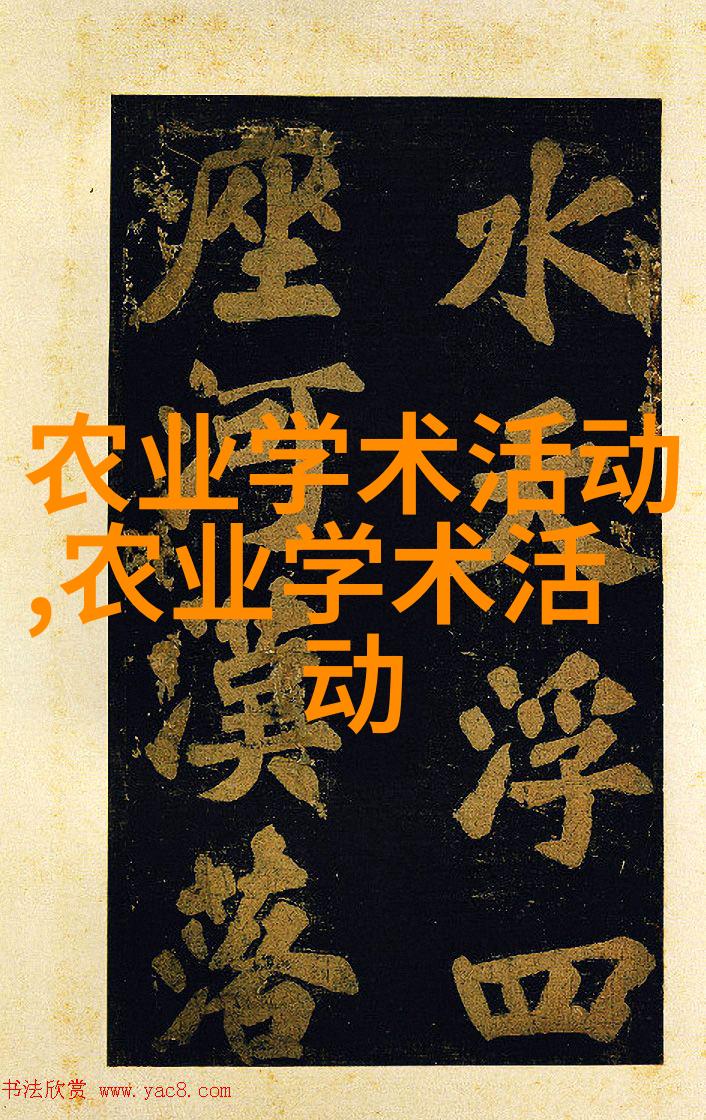 水天浮四
座河漢落
农业学术活动
,农业学术活
动
书法欣赏 www.yac8.com